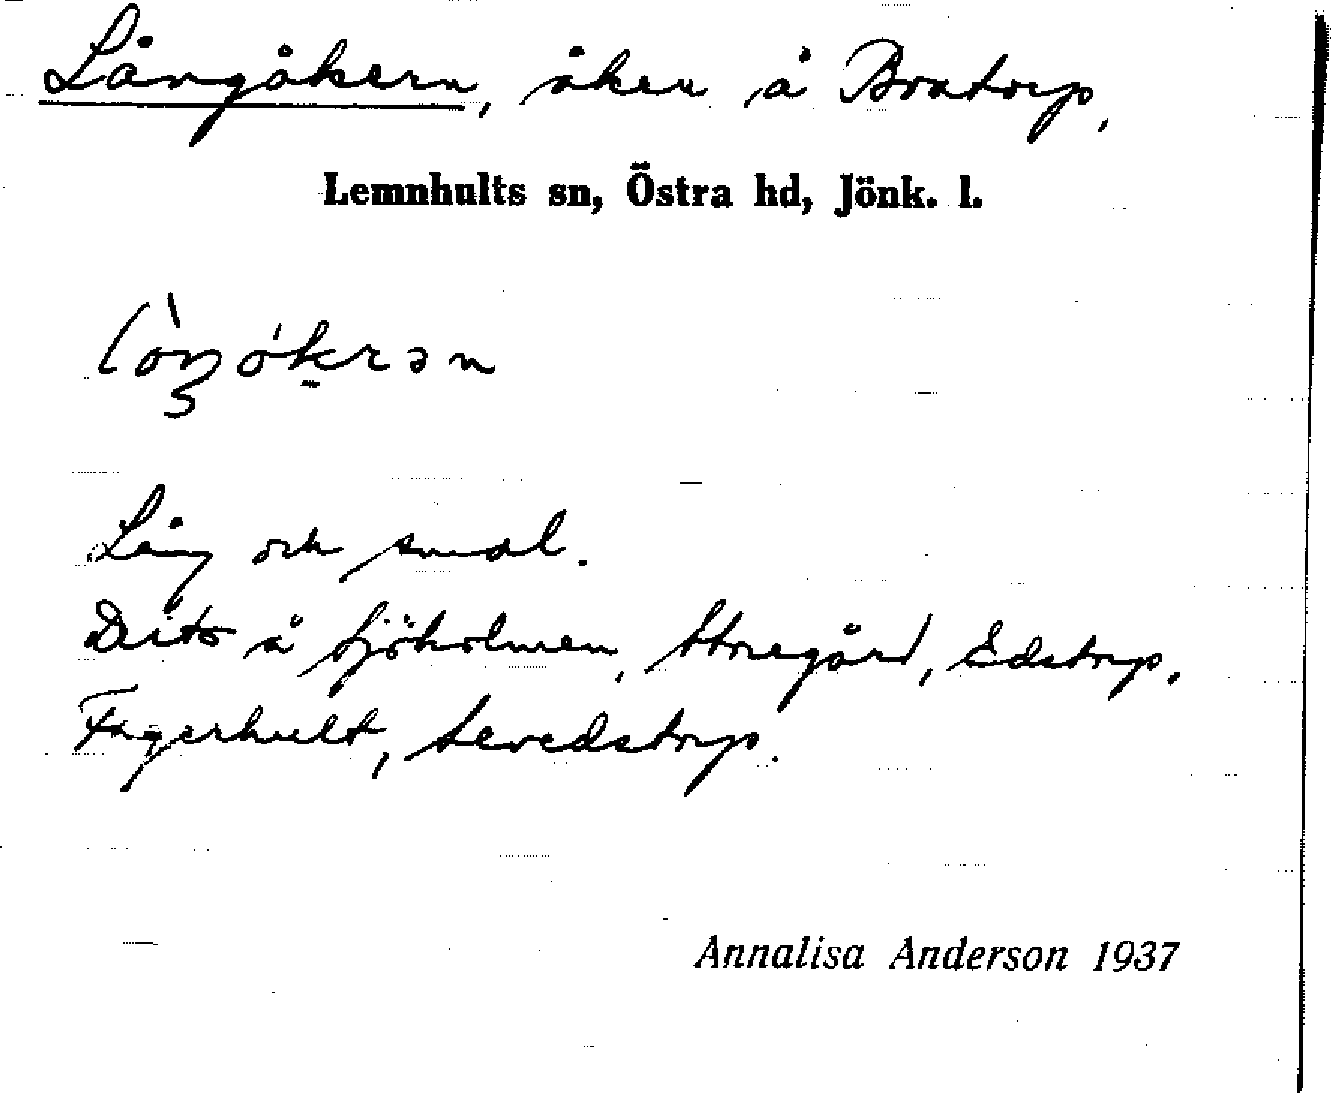 Långåkern, åker å Bratorp,
Lemnhults sn, Östra hd, Jönk. l.
Lång och smal.
Dito å Sjöholmen, Storegård, Edstorp,
Fagerhult, Levedstorp.
Annalisa Anderson 1937